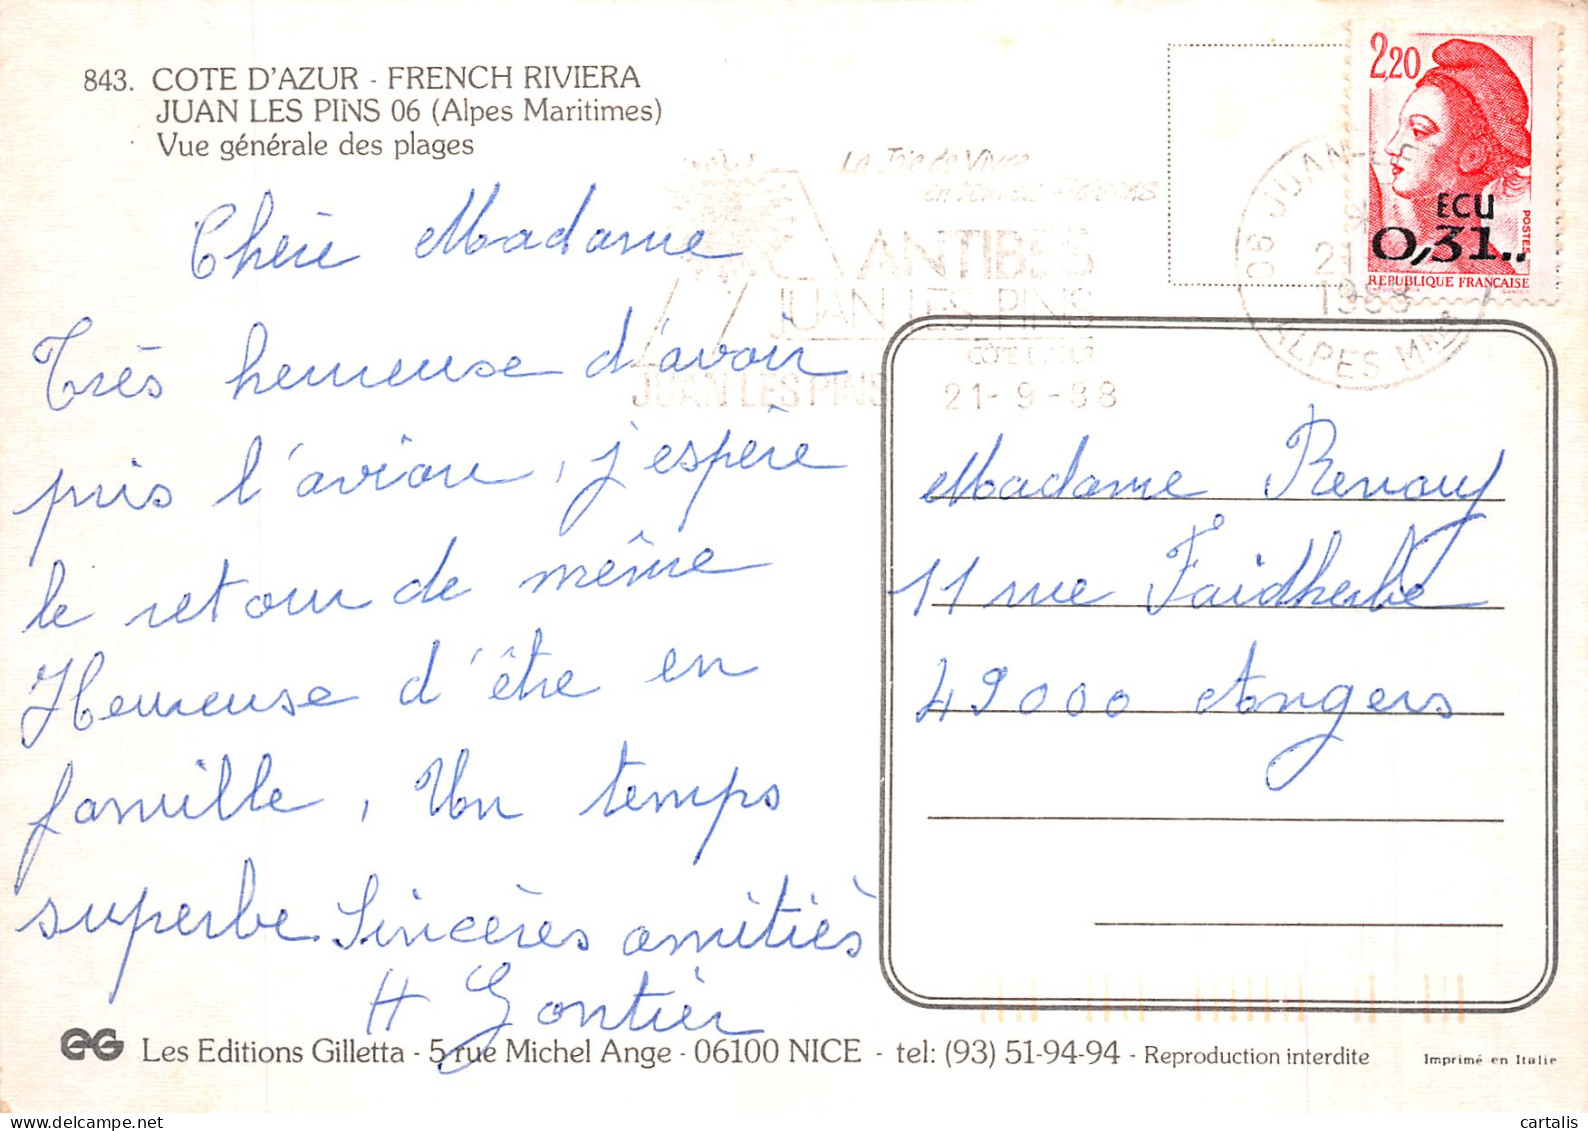 843. COTE D'AZUR - FRENCH RIVIERA
JUAN LES PINS 06 (Alpes Maritimes)
Vue générale des plages
2,20
ECU
0,31..
POSTES
REPUBLIQUE FRANÇAISE
La Joie de Vivre
en
ANTIBES
JUAN LES PINS
COTE D'AZUR
JUAN LES PINS
21-9-88
06 JUAN-LE
21
1988
ALPES MMES
Chère Madame
Très heureuse d'avoir
pris l'avion, j'espère
le retour de même
Heureuse d'être en
famille, Un temps
superbe. Sincères amitiès
H Gontier
Madame Renouf
11 rue Faidherbe
49000 Angers
EG Les Editions Gilletta - 5, rue Michel Ange - 06100 NICE - tel: (93) 51-94-94 - Reproduction interdite
Imprimé en Italie
cartalis